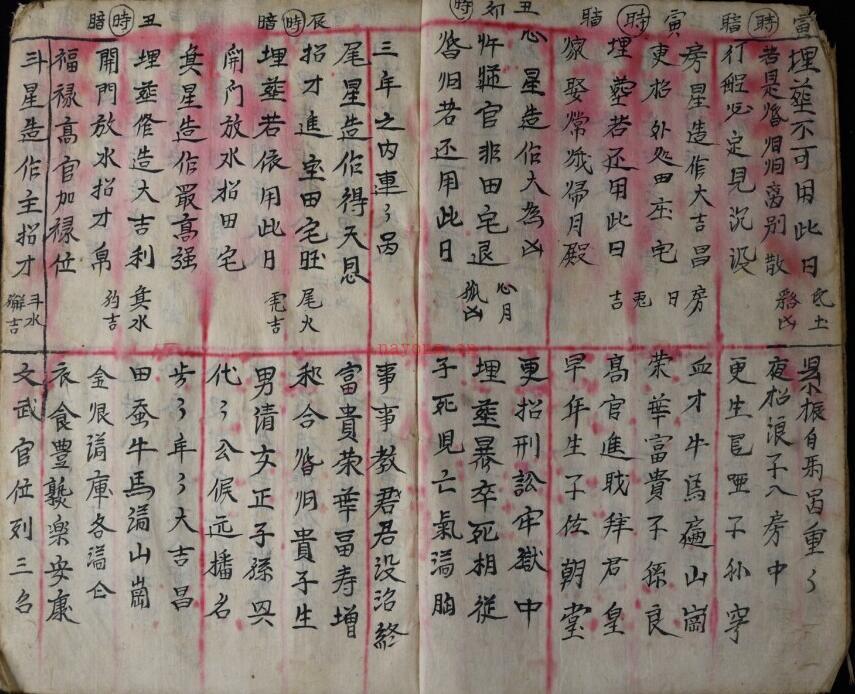 寅時暗
埋葬不可用此日
氐土
重々
若是婚姻離别散
貉凶
夜招浪子入房中
行船必定見沉没
更生耳哑子孙穷
寅時暗
房星造作大吉昌
房
血才牛馬遍山崗
更招外処田庄宅
日
荣華富貴子孫良
埋葬若还用此日
兎吉
高官進职拜君皇
嫁娶常娥歸月殿
早年生子佐朝堂
丑卯時
心星造作大為凶
心月
更招刑訟牢獄中
忤逆官非田宅退
狐凶
埋葬暴卒死相從
婚姻若还用此日
子死児亡氣滿胸
三年之内連々
事事教君没治終
辰時暗
尾星造作得天恩
尾火
富貴荣華畐寿增
招才進宝田宅旺
虎吉
和合婚姻貴子生
埋葬若依用此日
男清女正子孫興
開門放水招田宅
代々公候远播名
箕星造作最高强
岁々年々大吉昌
丑時暗
埋葬修造大吉利
箕水
田蚕牛馬滿山崗
開門放水招才帛
豹吉
金銀滿庫谷滿仓
福禄高官加禄位
衣食豐樂安康
斗星造作主招才
斗水獬吉
文武官位列三台